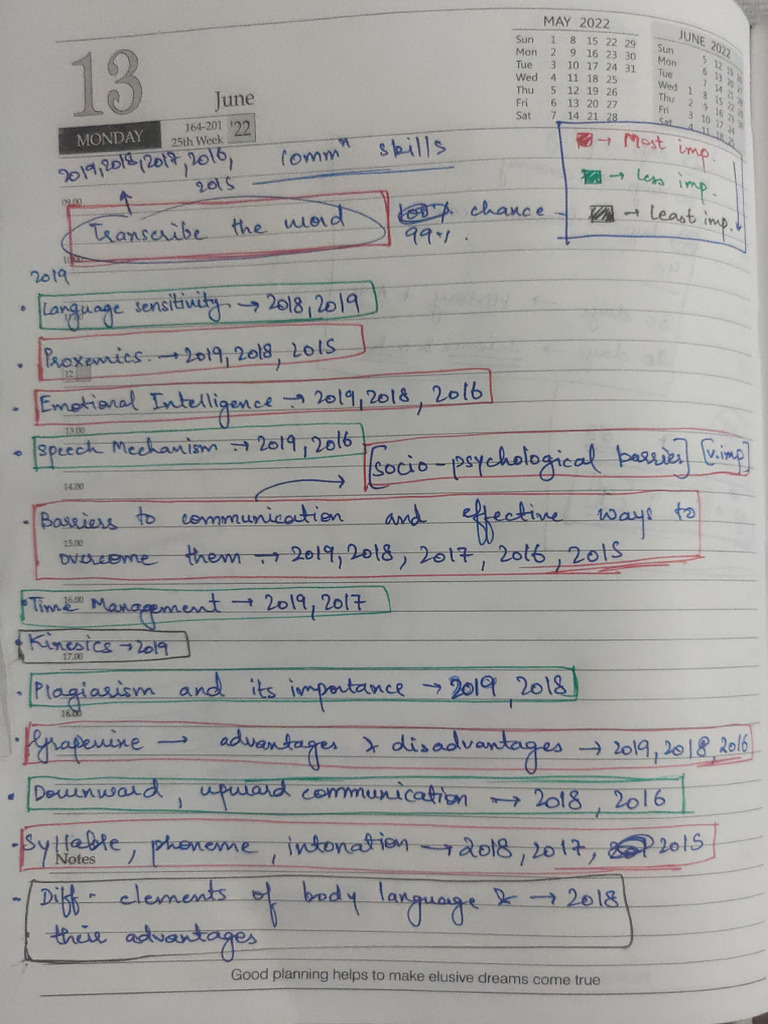 MAY 2022
Sun 1 8 15 22 29
Mon 2 9 16 23 30
Tue 3 10 17 24 31
Wed 4 11 18 25
Thu 5 12 19 26
Fri 6 13 20 27
Sat 7 14 21 28
JUNE 2022
Sun 5 12 19
Mon 6 13
Tue 7
Wed 1 8
Thu 2 9 16
Fri 3 10 17
Sat 4 11 18
13
June
MONDAY
164-201
25th Week
'22
2019,2018,2017,2016,
2015
commⁿ skills
→ Most imp.
→ less imp.
→ least imp.
09.00
Transcribe the word
% chance
99%.
2019
• Language sensitivity → 2018,2019
• Proxemics. → 2019,2018, 2015
12
• Emotional Intelligence → 2019,2018, 2016
13.00
• Speech Mechanism → 2019,2016
[socio-psychological barrier] [v.imp]
14.00
• Barriers to communication and effective ways to
15.00
overcome them → 2019,2018, 2017, 2016, 2015
16.00
• Time Management → 2019,2017
• Kinesics → 2019
17.00
• Plagiarism and its importance → 2019, 2018
• Grapevine → advantages & disadvantages → 2019,2018,2016
• Downward, upward communication → 2018, 2016
• Syllable, phoneme, intonation → 2018, 2017, 2015
Notes
- Diff. elements of body language & → 2018
their advantages
Good planning helps to make elusive dreams come true